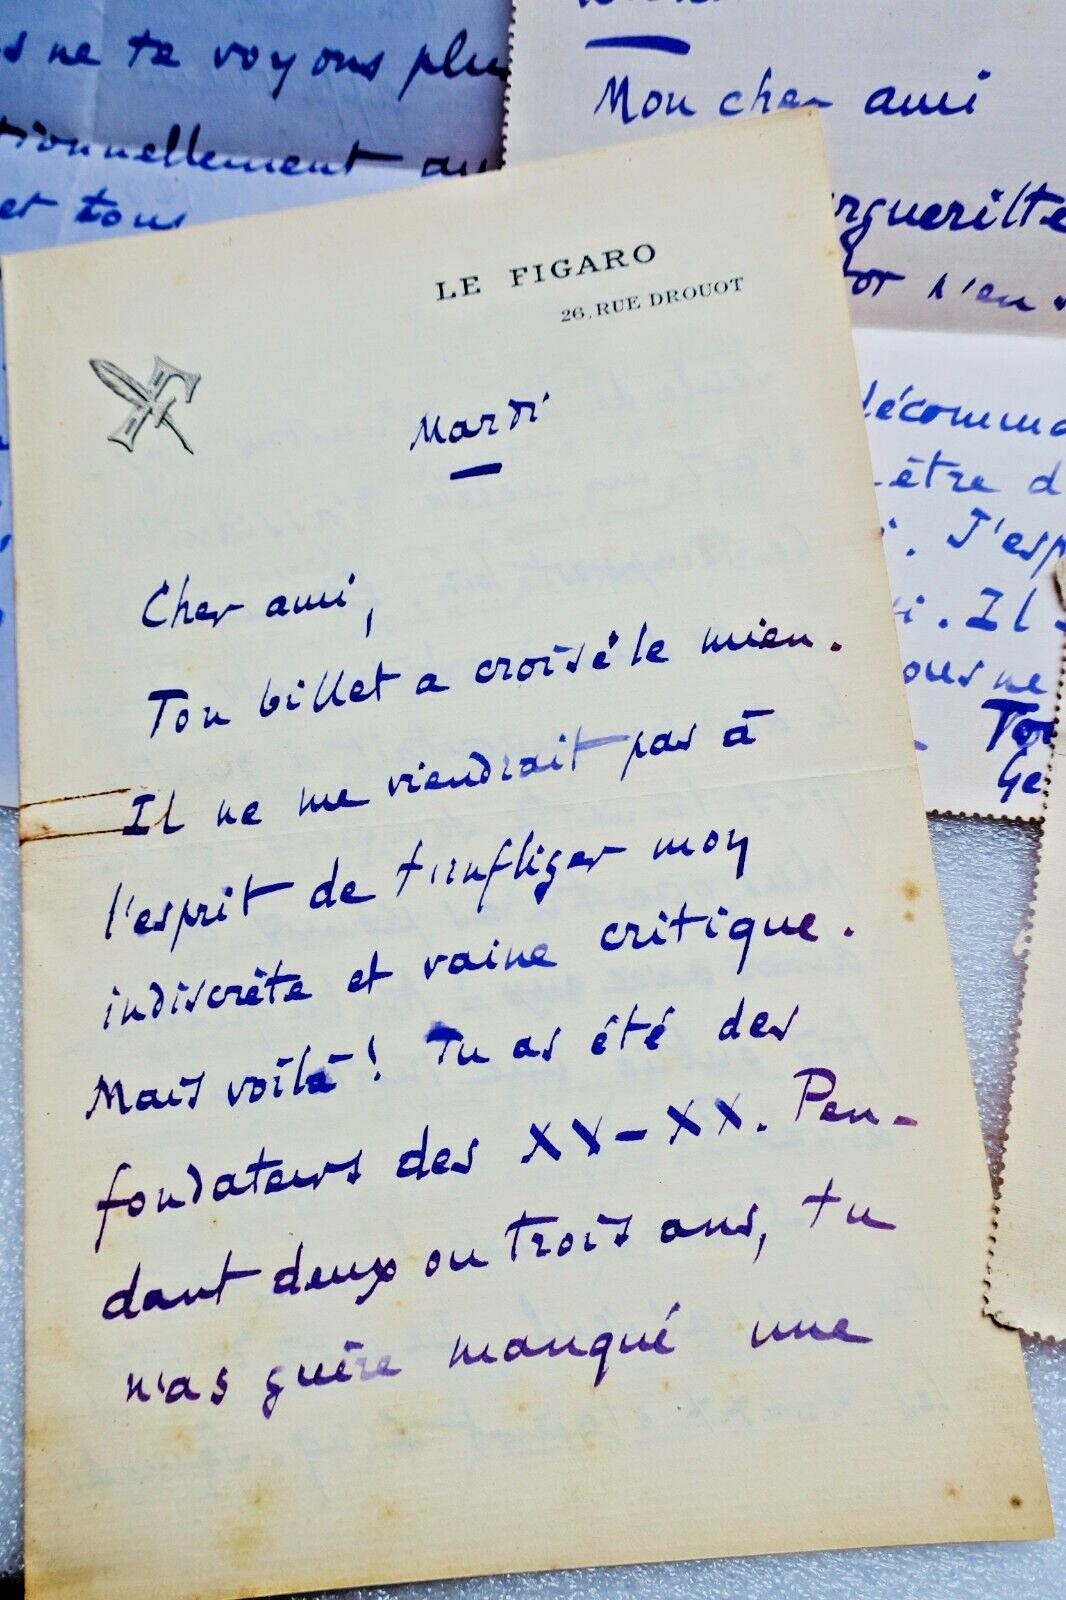 s ne te voyons plus
tionnellement au
et tous
Mon cher ami
rgueritte
s'en
décomma
être d
. J'esp
. Il
ous ne
Ge
LE FIGARO
26, RUE DROUOT
Mardi
Cher ami,
Ton billet a croisé le mien.
Il ne me viendrait pas à
l'esprit de t'infliger moy
indiscrète et vaine critique.
Mais voilà! Tu as été des
fondateurs des XX-XX. Pen-
dant deux ou trois ans, tu
n'as guère manqué une